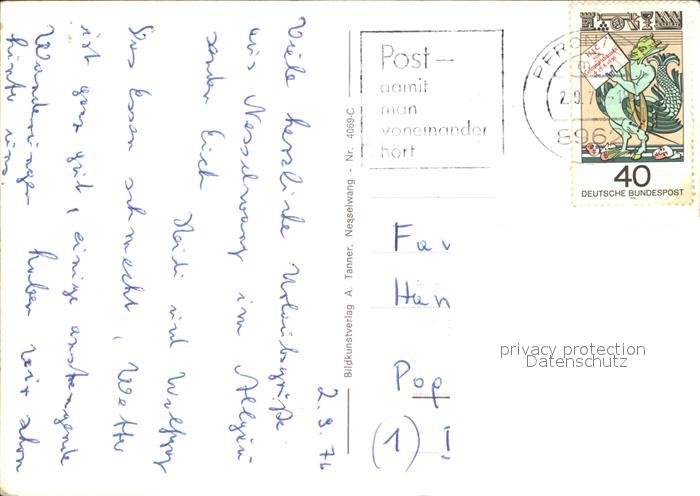 2.9.76
Viele herzliche Urlaubsgrüße
aus Nesselwang im Allgäu
senden Euch
Heidi und Wolfgang
Das Essen schmeckt, Wetter
ist ganz gut, einige anstrengende
Wanderungen haben wir schon
hinter uns.
Bildkunstverlag A. Tanner, Nesselwang - Nr. 4069-C
Post-
damit
man
voneinander
hört
PFRON
2.9.7
896
40
DEUTSCHE BUNDESPOST
Fav
Han
Pop
(1)
privacy protection
Datenschutz